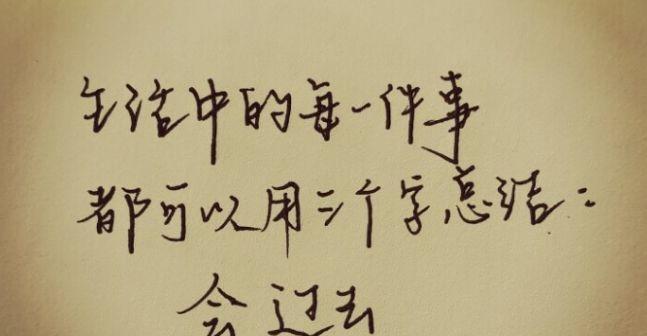 生活中的每一件事
都可以用三个字总结：
会过去